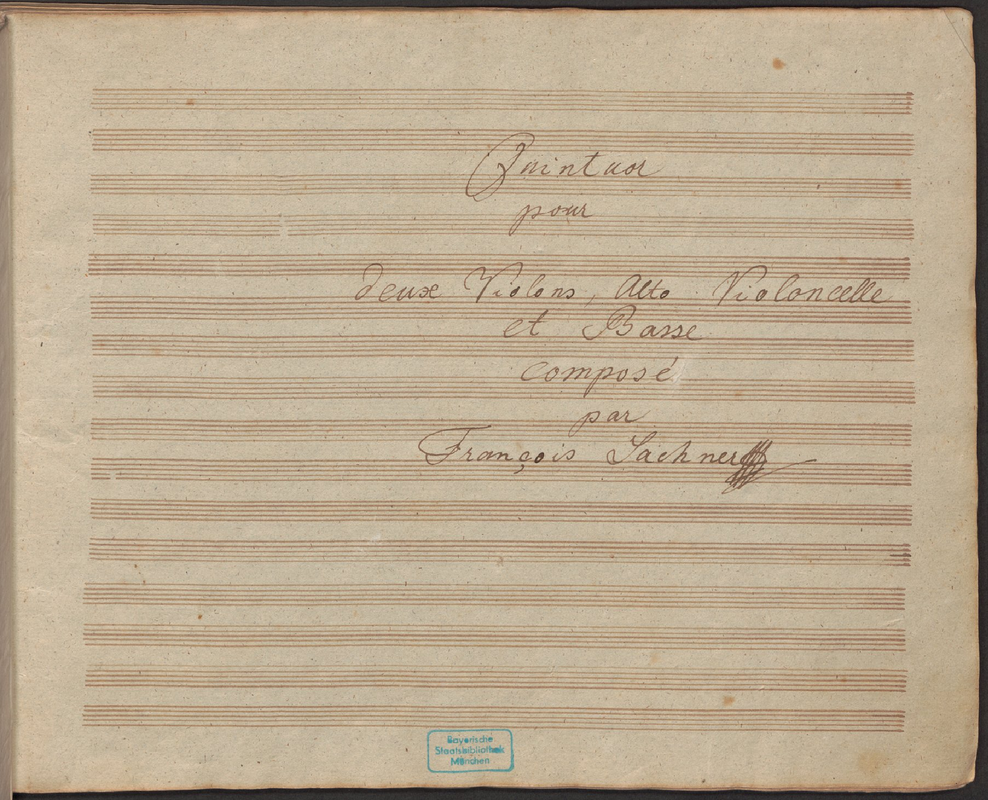 Quintuor
pour
deux Violons, Alto Violoncelle
et Basse
composé
par
François Lachner
Bayerische
Staatsbibliothek
München